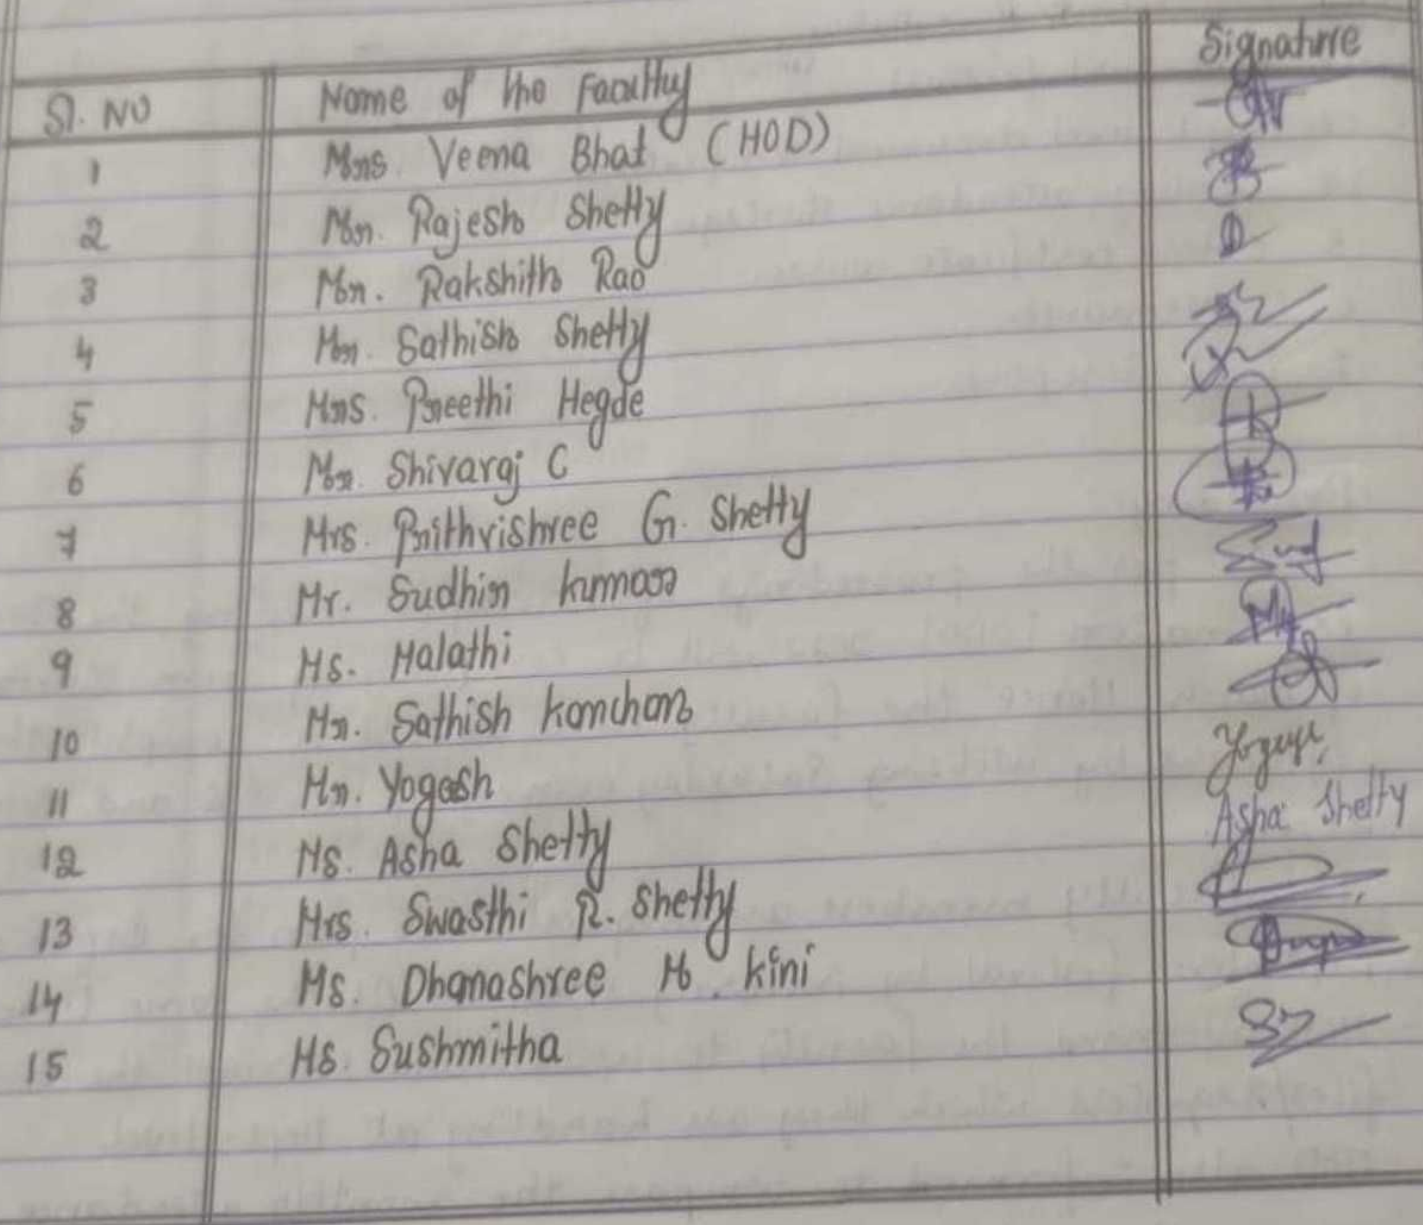 Sl. No Name of the Faculty Signature
1 Mrs. Veena Bhat (HOD)
2 Mr. Rajesh Shetty
3 Mr. Rakshith Rao
4 Mr. Sathish Shetty
5 Mrs. Preethi Hegde
6 Mr. Shivaraj C
7 Mrs. Prithvishree G. Shetty
8 Mr. Sudhir kumar
9 Ms. Malathi
10 Mr. Sathish kanchan
11 Mr. Yogesh
12 Ms. Asha Shetty Asha Shetty
13 Mrs. Swasthi R. Shetty
14 Ms. Dhanashree M. kini
15 Ms. Sushmitha